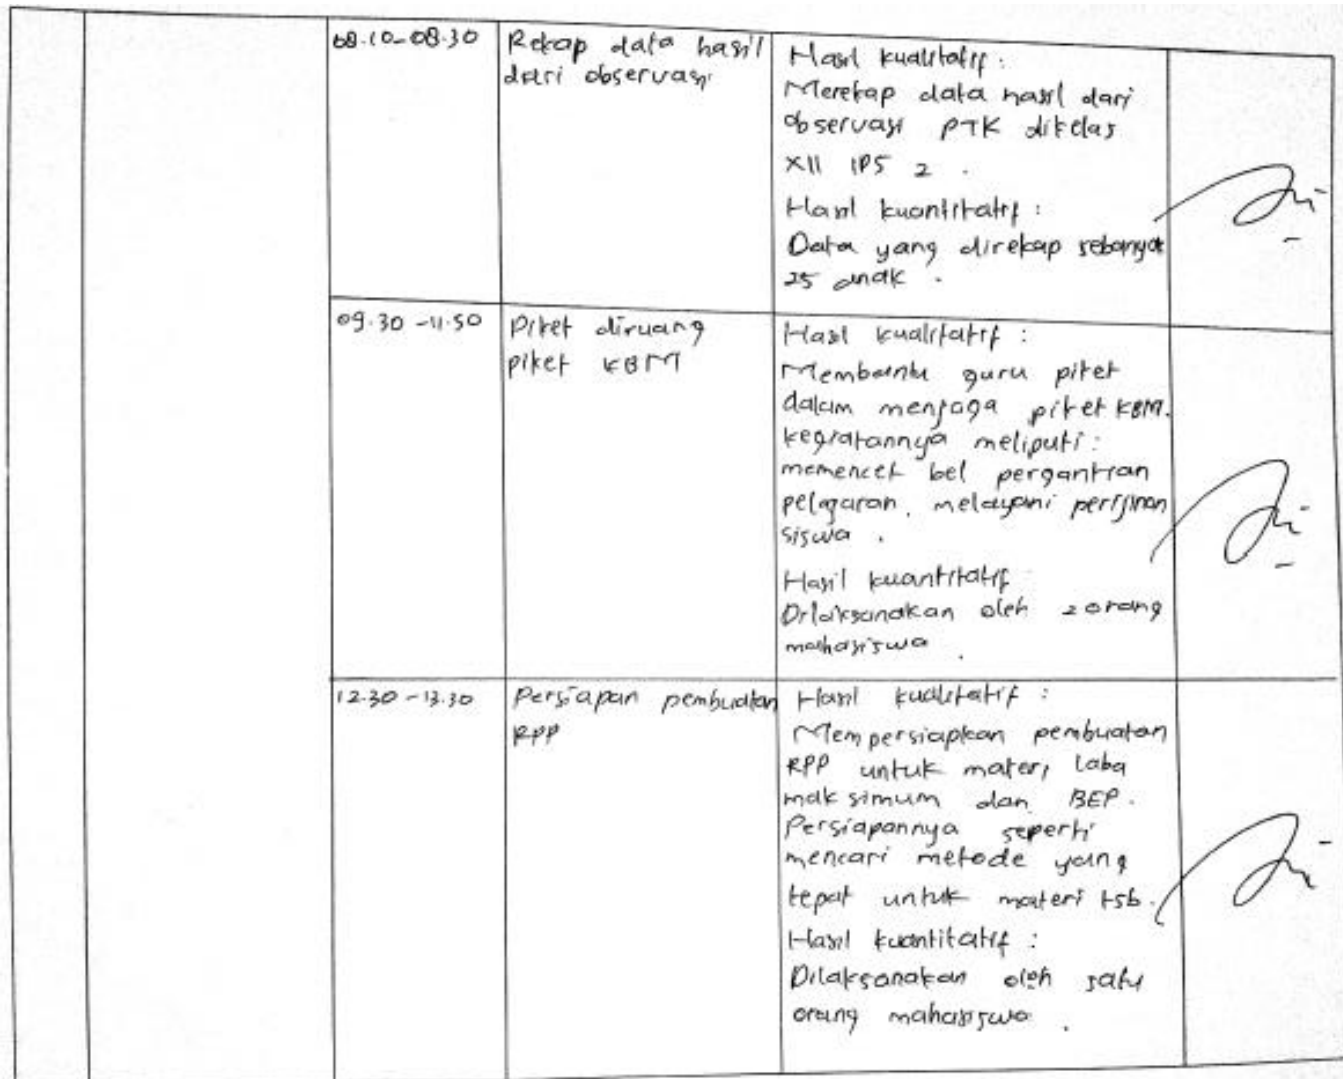 08.10-08.30
Rekap data hasil
dari observasi
Hasil kualitatif :
Merekap data hasil dari
observasi PTK dikelas
XII IPS 2 .
Hasil kuantitatif :
Data yang direkap sebanyak
25 anak .
09.30 - 11.50
Piket diruang
piket KBM
Hasil kualitatif :
Membantu guru piket
dalam menjaga piket KBM.
kegiatannya meliputi :
memencet bel pergantian
pelajaran, melayani perijinan
siswa .
Hasil kuantitatif
Dilaksanakan oleh 2 orang
mahasiswa .
12.30 - 13.30
Persiapan pembuatan
RPP
Hasil kualitatif :
Mempersiapkan pembuatan
RPP untuk materi laba
maksimum dan BEP.
Persiapannya seperti
mencari metode yang
tepat untuk materi tsb.
Hasil kuantitatif :
Dilaksanakan oleh satu
orang mahasiswa .